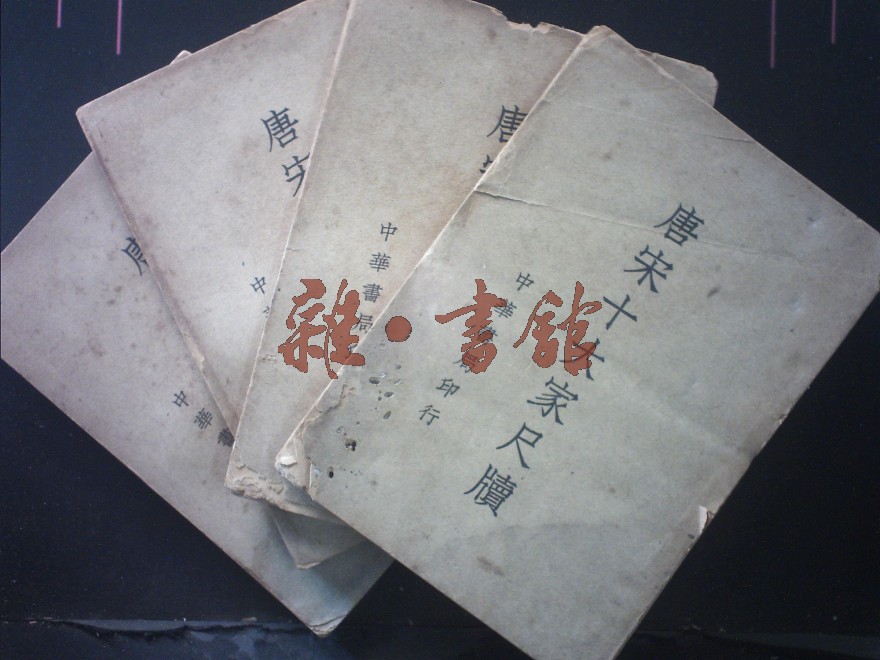 唐宋十大家尺牘
中華書局印行
唐宋
中華書局
唐宋
中
唐
中華書
雜·書館